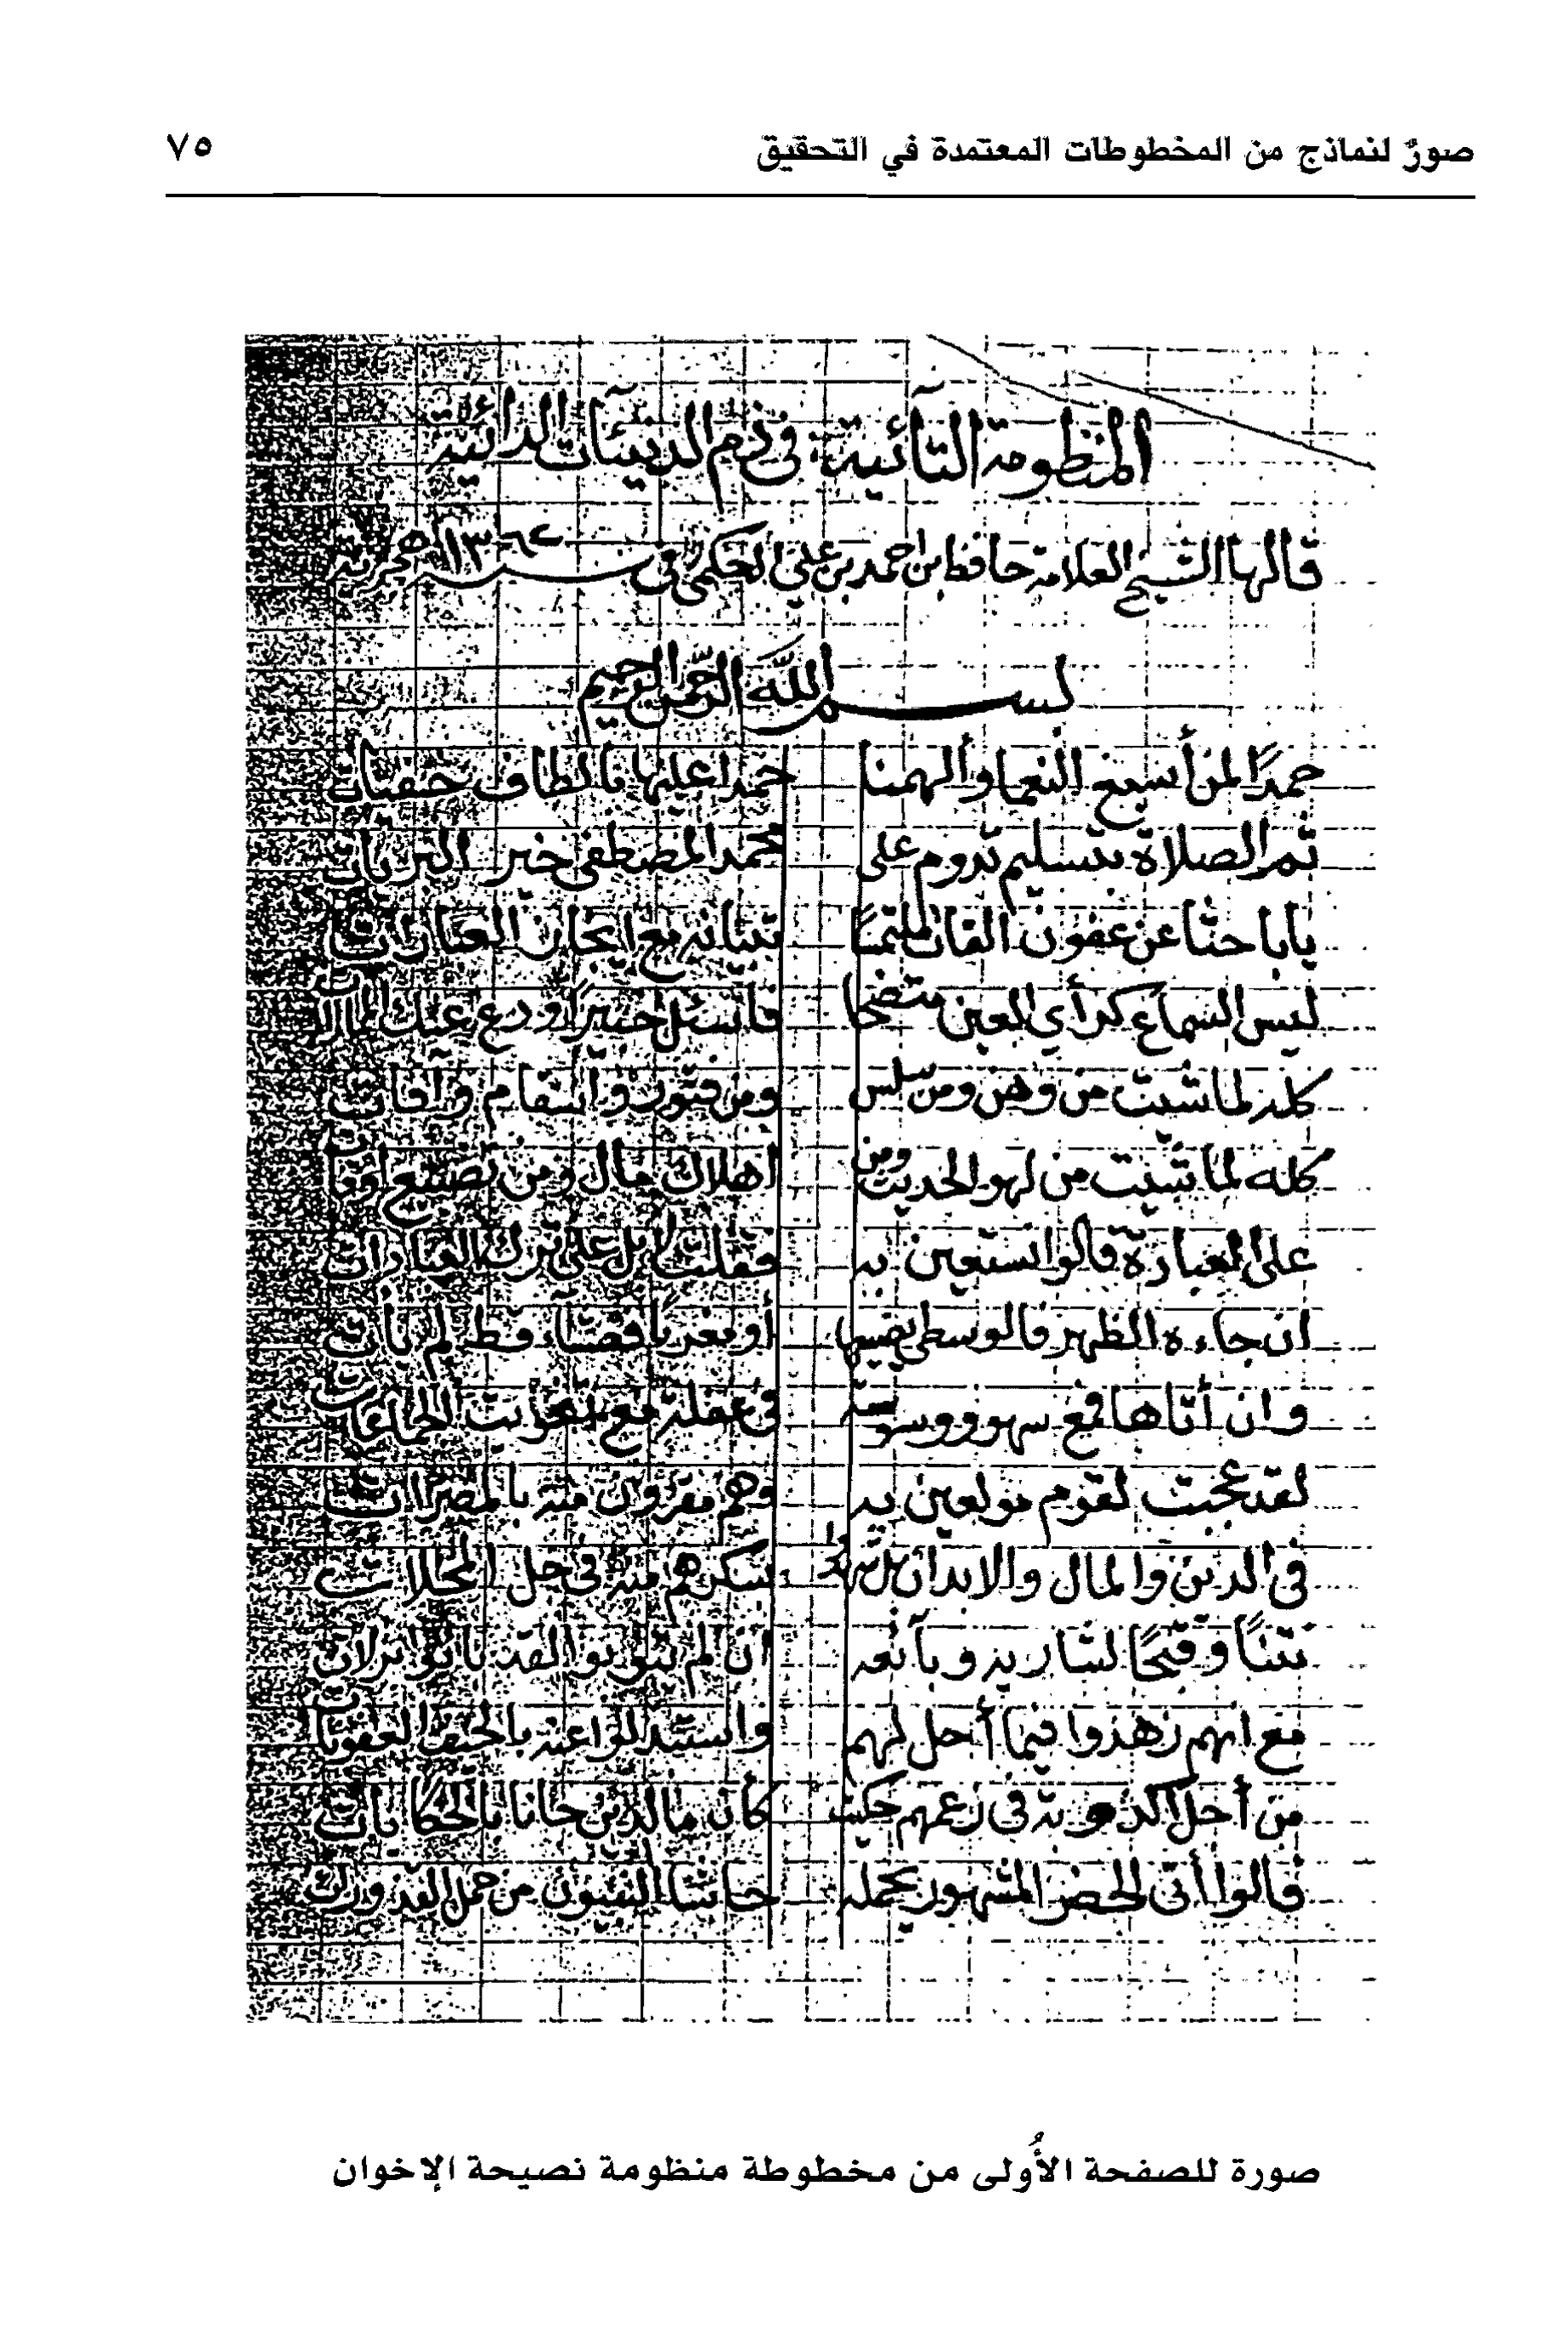 صورٌ لنماذج من المخطوطات المعتمدة في التحقيق ٧٥
المنظومة التآئية: في ذم الدنيئآت الدآئية
قالها الشيخ العلامة حافظ بن احمد بن علي الحكمي في سنة هجرية
بسم الله الرحمن الرحيم
حمدًا لمن أسبغ النعما وألهمنا حمدا عليها بالطاف خفيات
ثم الصلاة بتسليم تدوم على محمد المصطفى خير البريات
يا باحثا عن عفون القات ملتمسًا تبيانه مع ايجاز العبارات
ليس السماع كرأي العين متضحا فاسئل خبيرًا ودع عنك
كله لما شئت من وهن ومن سلس ومن فتور وأسقام وآفات
كله لما شئت من لهو الحديث ومن اهلاك مال ومن تضييع اوقات
على العبادة قالوا نستعين به فقلت لا بل على ترك العبادات
ان جاءه الظهر فالوسطى يضيعها أو مغربا فعشاء قط لم يأت
وان أتاها فمع سهو ووسوسة في غفلة مع تفويت الجماعات
لقد عجبت لقوم مولعين به وهم مقرون منه بالمضرات
في الدين والمال والابدان بل شكرهم منه في حل المحلات
نتنًا وقبحًا لشاربه وبآئعه ان لم يتوبوا لقد باؤا بزلات
مع انهم زهدوا فيما أحل لهم واستبدلوا عنه بالخبث العفونات
من أحل في زعمهم حكيت كأن ما الدين جانا بالحكايات
قالوا أتى الخضر المشهور يحمله حاشا النبيون من حمل القذورات
صورة للصفحة الأُولى من مخطوطة منظومة نصيحة الإخوان